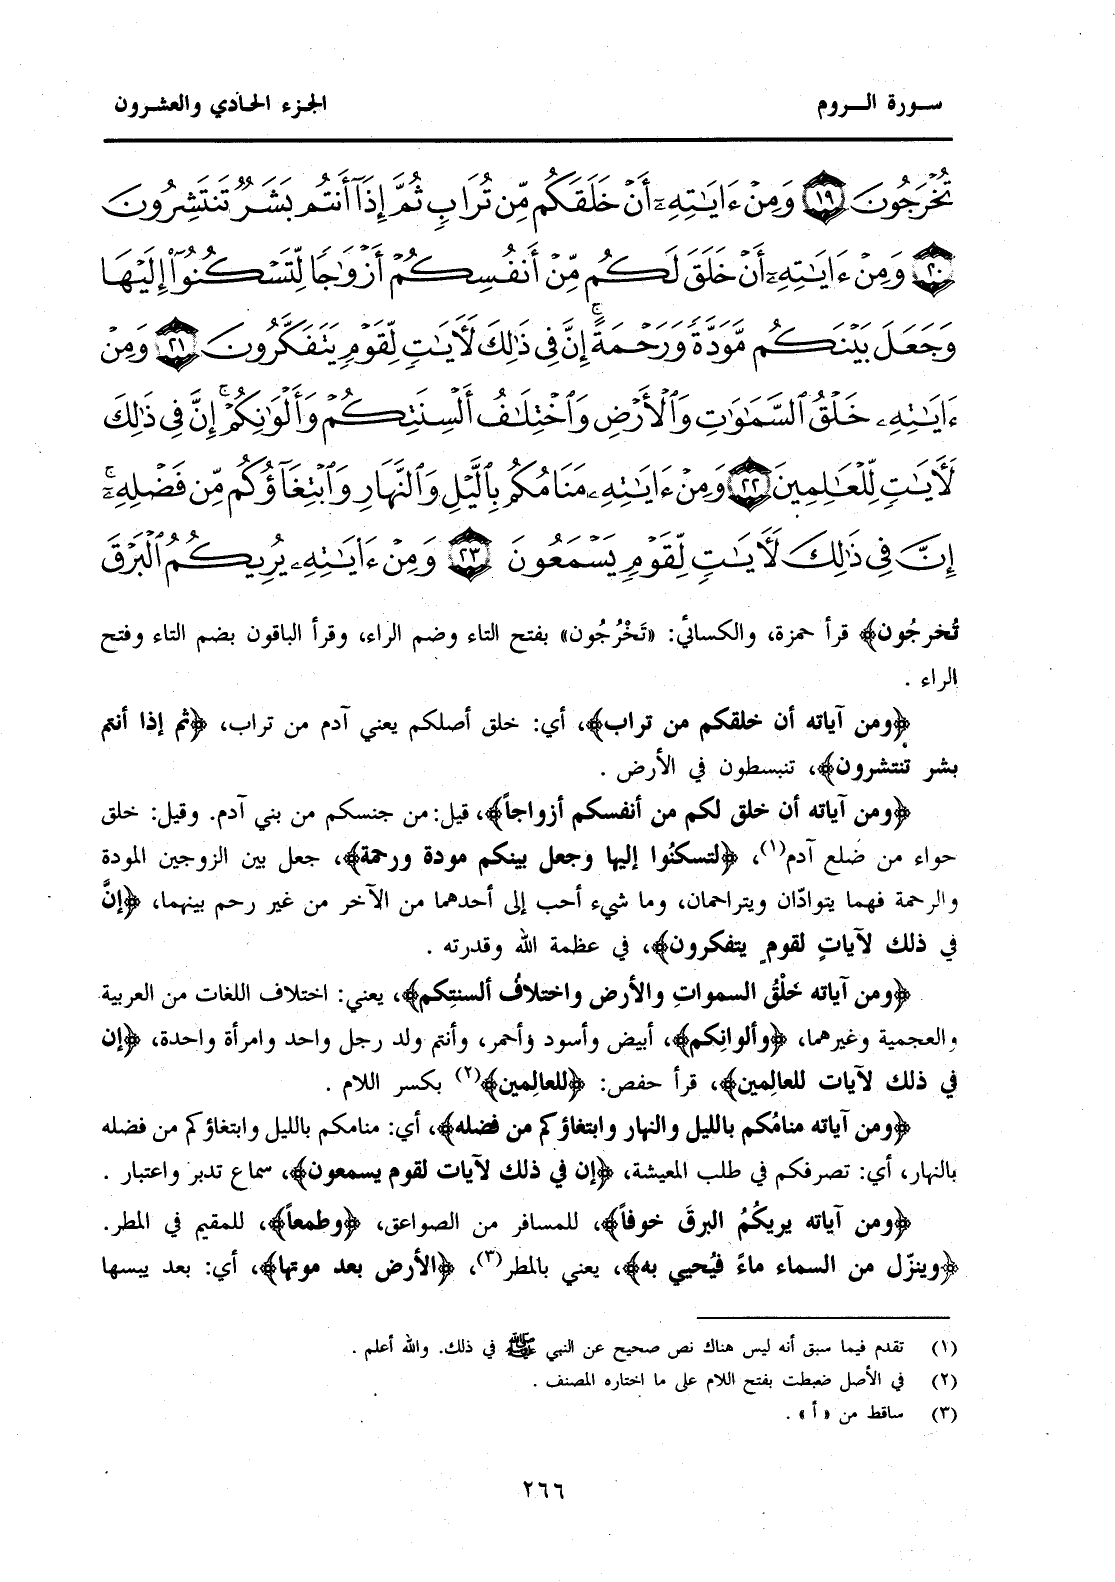 سورة الروم
الجزء الحادي والعشرون
تُخْرَجُونَ ﴿١٩﴾ وَمِنْ ءَايَٰتِهِۦٓ أَنْ خَلَقَكُم مِّن تُرَابٍ ثُمَّ إِذَآ أَنتُم بَشَرٌ تَنتَشِرُونَ
﴿٢٠﴾ وَمِنْ ءَايَٰتِهِۦٓ أَنْ خَلَقَ لَكُم مِّنْ أَنفُسِكُمْ أَزْوَٰجًا لِّتَسْكُنُوٓا۟ إِلَيْهَا
وَجَعَلَ بَيْنَكُم مَّوَدَّةً وَرَحْمَةً ۚ إِنَّ فِى ذَٰلِكَ لَءَايَٰتٍ لِّقَوْمٍ يَتَفَكَّرُونَ ﴿٢١﴾ وَمِنْ
ءَايَٰتِهِۦ خَلْقُ ٱلسَّمَٰوَٰتِ وَٱلْأَرْضِ وَٱخْتِلَٰفُ أَلْسِنَتِكُمْ وَأَلْوَٰنِكُمْ ۚ إِنَّ فِى ذَٰلِكَ
لَءَايَٰتٍ لِّلْعَٰلِمِينَ ﴿٢٢﴾ وَمِنْ ءَايَٰتِهِۦ مَنَامُكُم بِٱلَّيْلِ وَٱلنَّهَارِ وَٱبْتِغَآؤُكُم مِّن فَضْلِهِۦٓ ۚ
إِنَّ فِى ذَٰلِكَ لَءَايَٰتٍ لِّقَوْمٍ يَسْمَعُونَ ﴿٢٣﴾ وَمِنْ ءَايَٰتِهِۦ يُرِيكُمُ ٱلْبَرْقَ
تُخرجُون﴾ قرأ حمزة، والكسائي: «تَخْرُجُون» بفتح التاء وضم الراء، وقرأ الباقون بضم التاء وفتح
الراء .
﴿ومن آياته أن خلقكم من تراب﴾، أي: خلق أصلكم يعني آدم من تراب، ﴿ثم إذا أنتم
بشر تنتشرون﴾، تنبسطون في الأرض .
﴿ومن آياته أن خلق لكم من أنفسكم أزواجاً﴾، قيل: من جنسكم من بني آدم. وقيل: خلق
حواء من ضلع آدم(١)، ﴿لتسكنُوا إليها وجعل بينكم مودة ورحمة﴾، جعل بين الزوجين المودة
والرحمة فهما يتوادّان ويتراحمان، وما شيء أحب إلى أحدهما من الآخر من غير رحم بينهما، ﴿إنَّ
في ذلك لآياتٍ لقومٍ يتفكرون﴾، في عظمة الله وقدرته .
﴿ومن آياته خَلْقُ السموات والأرض واختلافُ ألسنتِكم﴾، يعني: اختلاف اللغات من العربية
والعجمية وغيرهما، ﴿وألوانِكم﴾، أبيض وأسود وأحمر، وأنتم ولد رجل واحد وامرأة واحدة، ﴿إن
في ذلك لآيات للعالِمين﴾، قرأ حفص: ﴿للعالِمين﴾(٢) بكسر اللام .
﴿ومن آياته منامُكم بالليل والنهار وابتغاؤكم من فضله﴾، أي: منامكم بالليل وابتغاؤكم من فضله
بالنهار، أي: تصرفكم في طلب المعيشة، ﴿إن في ذلك لآيات لقوم يسمعون﴾، سماع تدبر واعتبار .
﴿ومن آياته يريكُمُ البرقَ خوفاً﴾، للمسافر من الصواعق، ﴿وطمعاً﴾، للمقيم في المطر.
﴿وينزّل من السماء ماءً فيُحيي به﴾، يعني بالمطر(٣)، ﴿الأرض بعد موتها﴾، أي: بعد يبسها
(١) تقدم فيما سبق أنه ليس هناك نص صحيح عن النبي ﷺ في ذلك. والله أعلم .
(٢) في الأصل ضبطت بفتح اللام على ما اختاره المصنف .
(٣) ساقط من «أ» .
٢٦٦